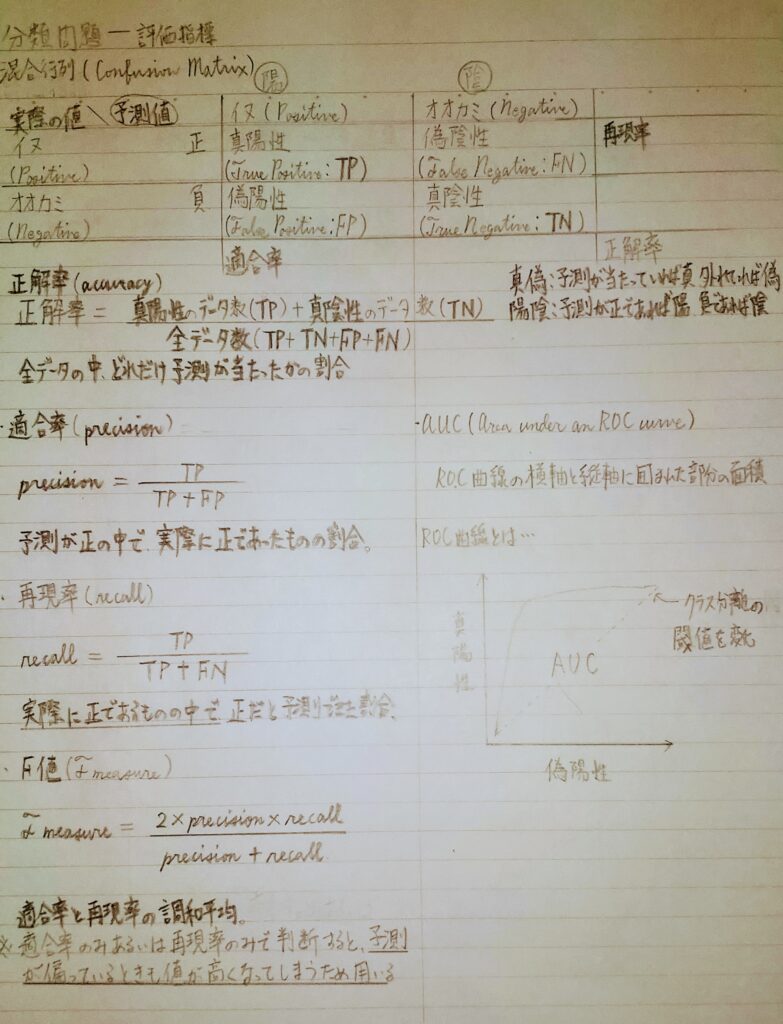 分類問題 ー 評価指標
混合行列 (Confusion Matrix) 陽 陰
実際の値 \ 予測値 イヌ (Positive) オオカミ (Negative)
イヌ 正 真陽性 偽陰性 再現率
(Positive) (True Positive: TP) (False Negative: FN)
オオカミ 負 偽陽性 真陰性
(Negative) (False Positive: FP) (True Negative: TN)
適合率 正解率
正解率 (accuracy)
正解率 = 真陽性のデータ数(TP) + 真陰性のデータ数(TN)
全データ数(TP+TN+FP+FN)
全データの中、どれだけ予測が当たったかの割合
真偽:予測が当たっていれば真 外れていれば偽
陽陰:予測が正であれば陽 負であれば陰
・適合率 (precision)
precision = TP
TP + FP
予測が正の中で、実際に正であったものの割合。
・再現率 (recall)
recall = TP
TP + FN
実際に正であるものの中で 正だと予測できた割合、
・F値 (F measure)
F measure = 2×precision×recall
precision + recall
適合率と再現率の調和平均。
※適合率のみあるいは再現率のみで判断すると、予測
が偏っているときも値が高くなってしまうため用いる
・AUC (Area under an ROC curve)
ROC曲線の横軸と縦軸に囲まれた部分の面積
ROC曲線とは…
真陽性
AUC
クラス分離の
閾値を変化
偽陽性